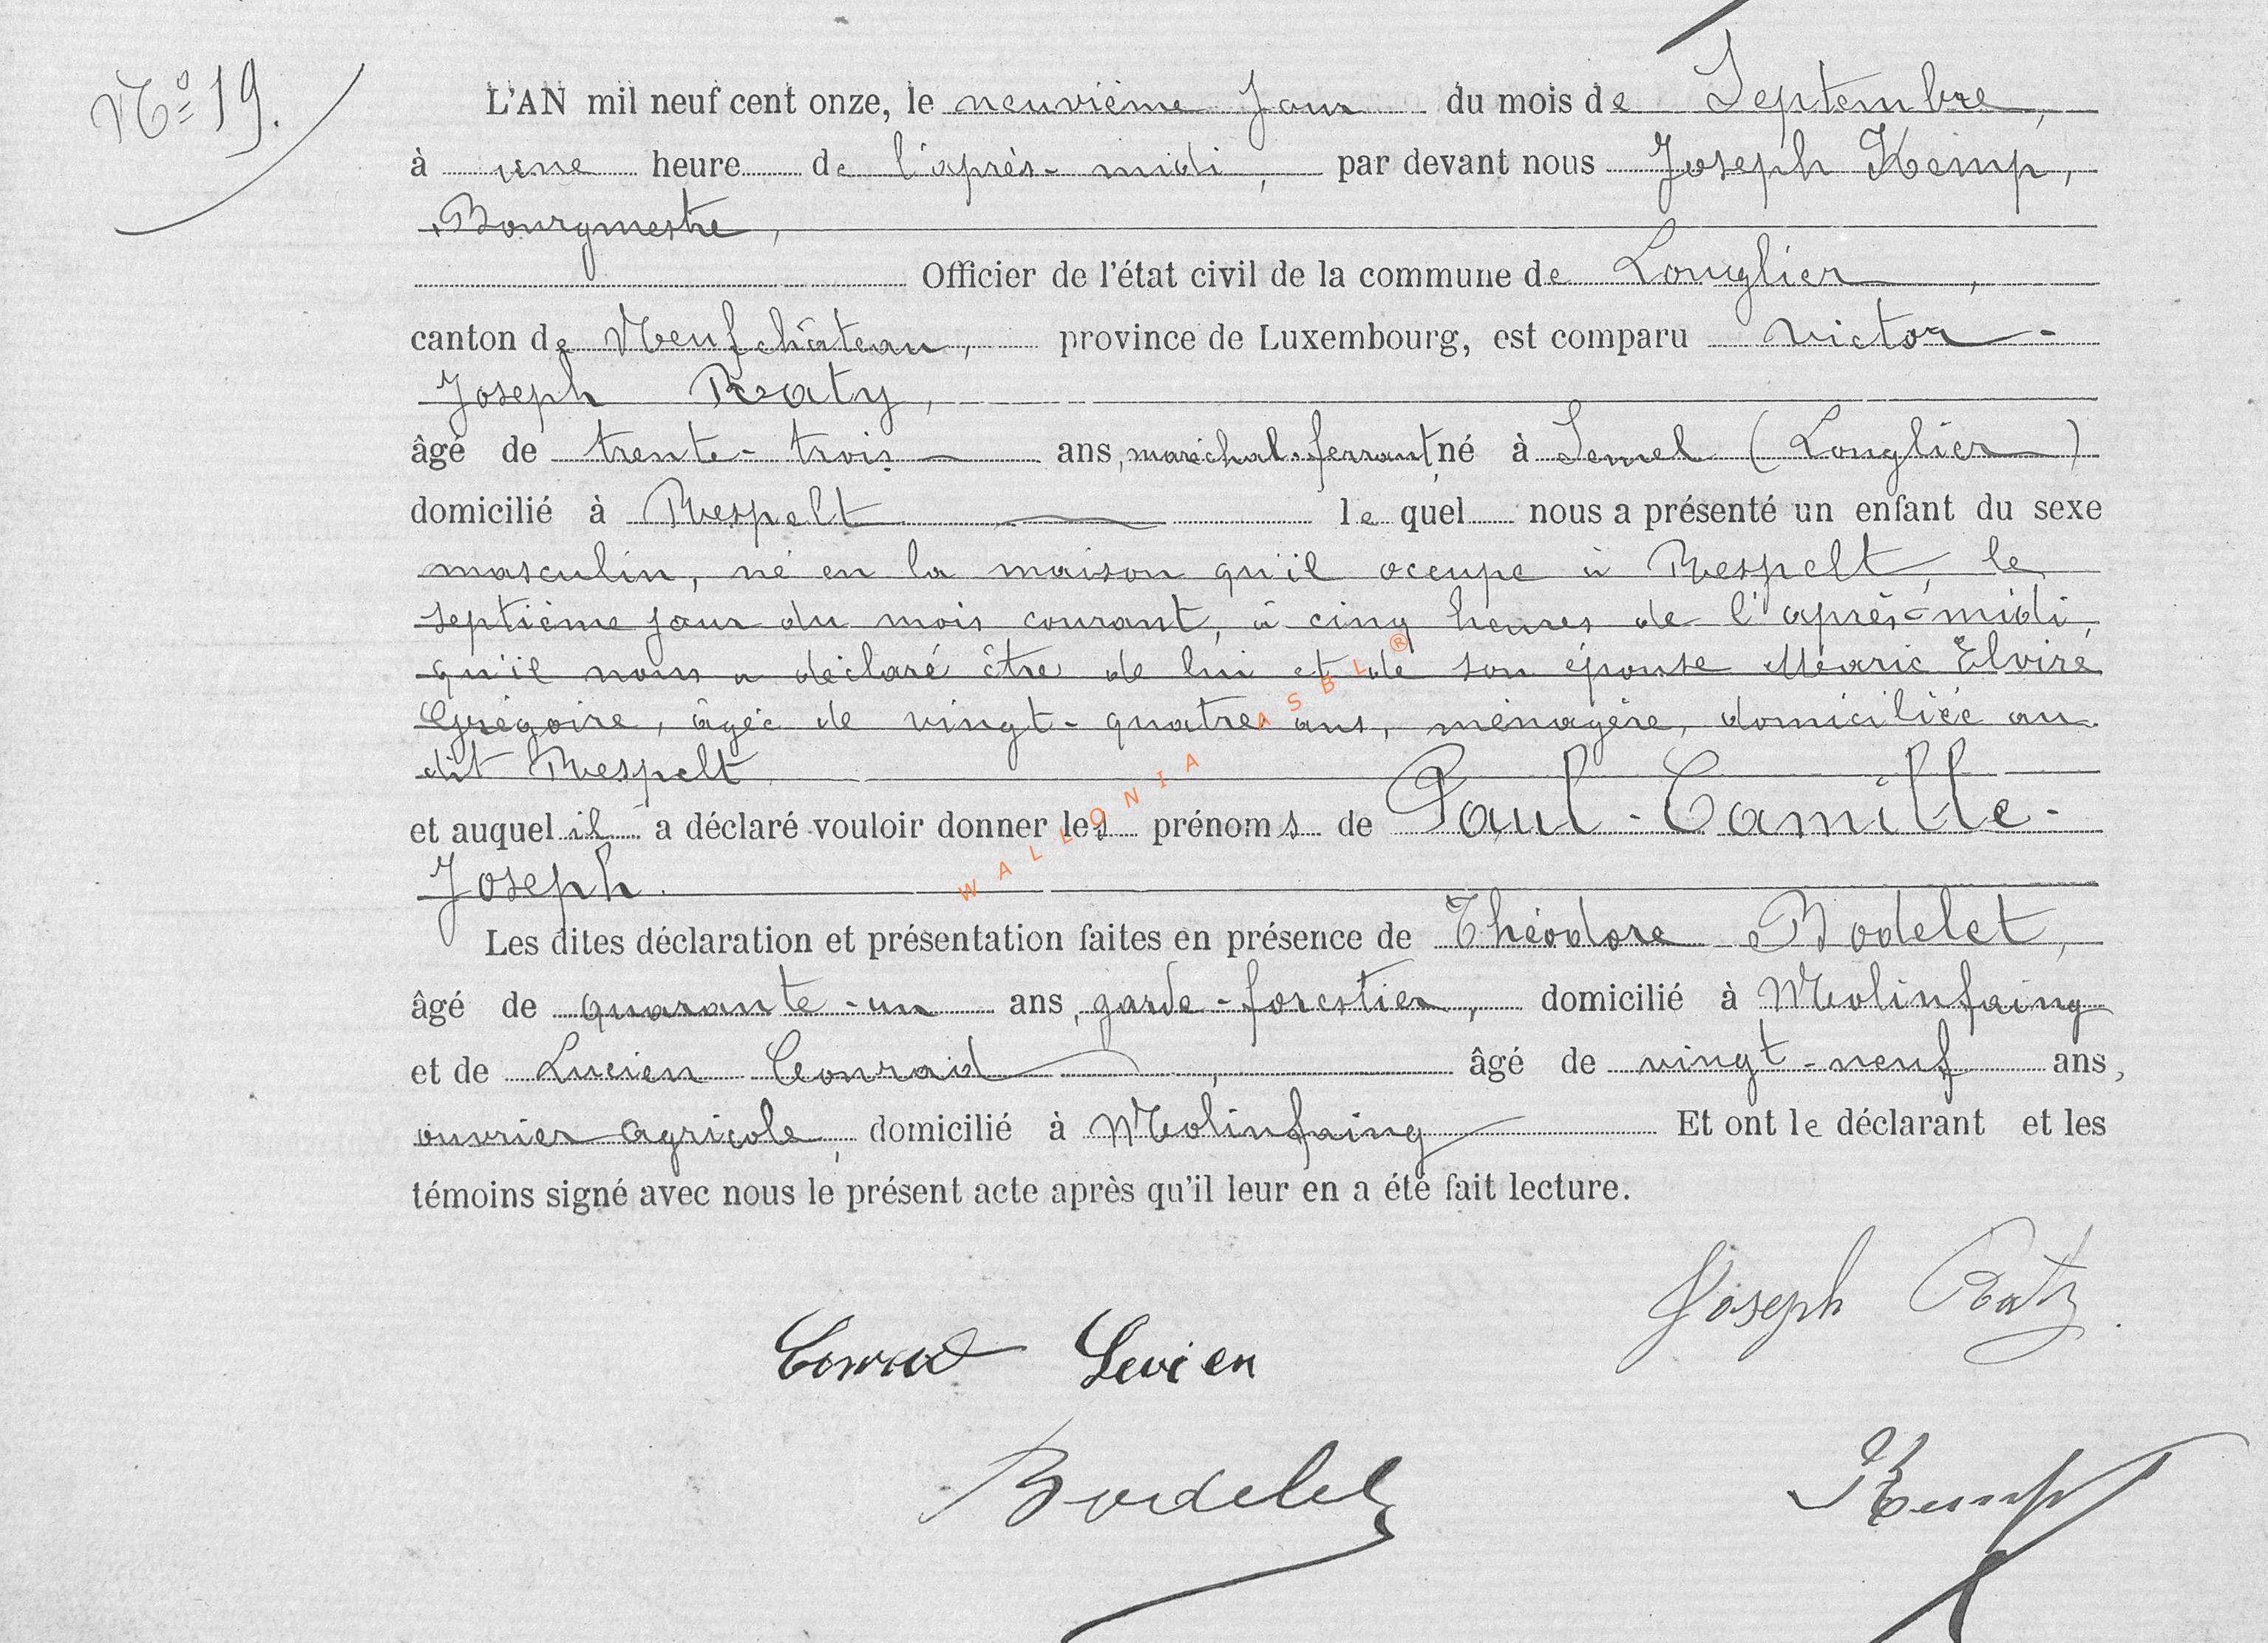 N° 19.
L'AN mil neuf cent onze, le neuvième jour du mois de Septembre,
à une heure de l'après-midi, par devant nous Joseph Kemp,
Bourgmestre,
Officier de l'état civil de la commune de Longlier,
canton de Neufchâteau, province de Luxembourg, est comparu Victor-
Joseph Raty,
âgé de trente-trois ans, maréchal-ferrant, né à Semel (Longlier)
domicilié à Respelt lequel nous a présenté un enfant du sexe
masculin, né en la maison qu'il occupe à Respelt, le
septième jour du mois courant, à cinq heures de l'après-midi,
qu'il nous a déclaré être de lui et de son épouse Marie Elvire
Grégoire, âgée de vingt-quatre ans, ménagère, domiciliée au
dit Respelt
et auquel il a déclaré vouloir donner les prénoms de Paul-Camille-
Joseph.
Les dites déclaration et présentation faites en présence de Théodore Bodelet,
âgé de quarante-un ans, garde-forestier, domicilié à Molinfaing
et de Lucien Conrad, âgé de vingt-neuf ans,
ouvrier agricole, domicilié à Molinfaing Et ont le déclarant et les
témoins signé avec nous le présent acte après qu'il leur en a été fait lecture.
Joseph Raty
Conrad Lucien
Bodelet
Kemp
WALLONIA ASBL ®